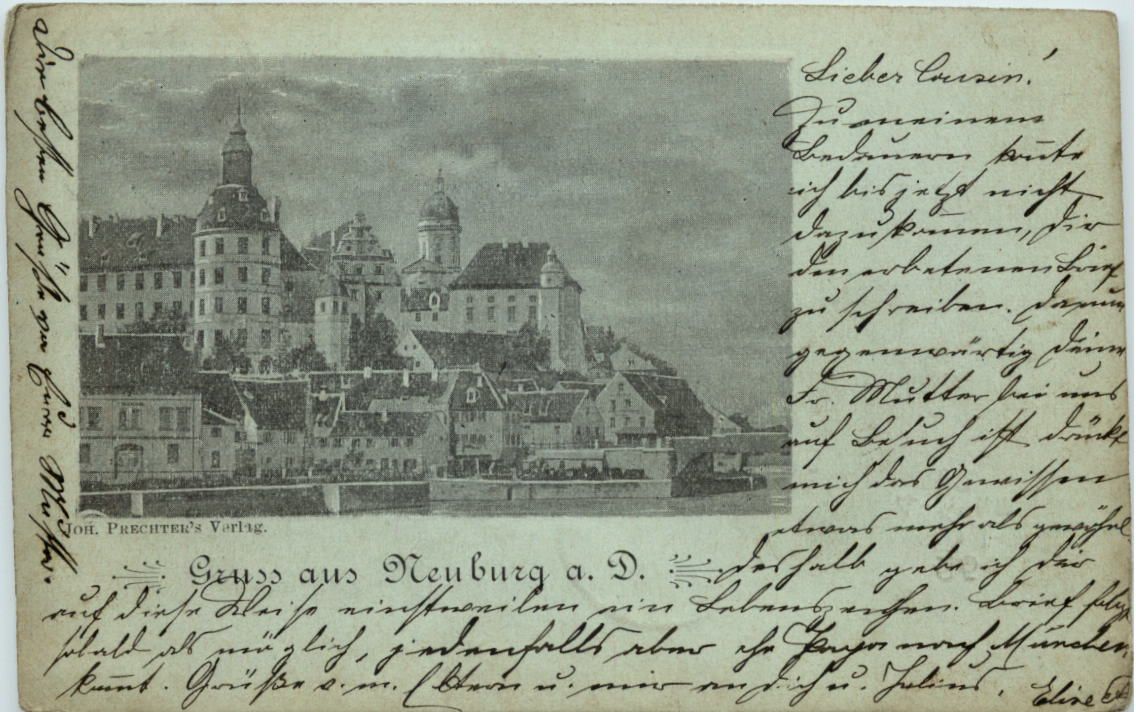 Lieber Cousin!
Zu meinem
Bedauern konte
ich bis jetzt nicht
dazu komen, Dir
den erbetenen Brief
zu schreiben. Da nun
gegenwärtig Deine
Fr. Mutter bei uns
auf Besuch ist drückt
mich das Gewissen
etwas mehr als gewöhnl.
deshalb gebe ich Dir
auf diese Weise einstweilen ein Lebenszeichen. Brief folgt
sobald als möglich, jedenfalls aber ehe Papa nach München
komt. Grüße v. m. Eltern u. mir an Dich u. Julius. Elise
besten Grüße von Eurer Mutter.
JOH. PRECHTER'S Verlag.
Gruss aus Neuburg a. D.